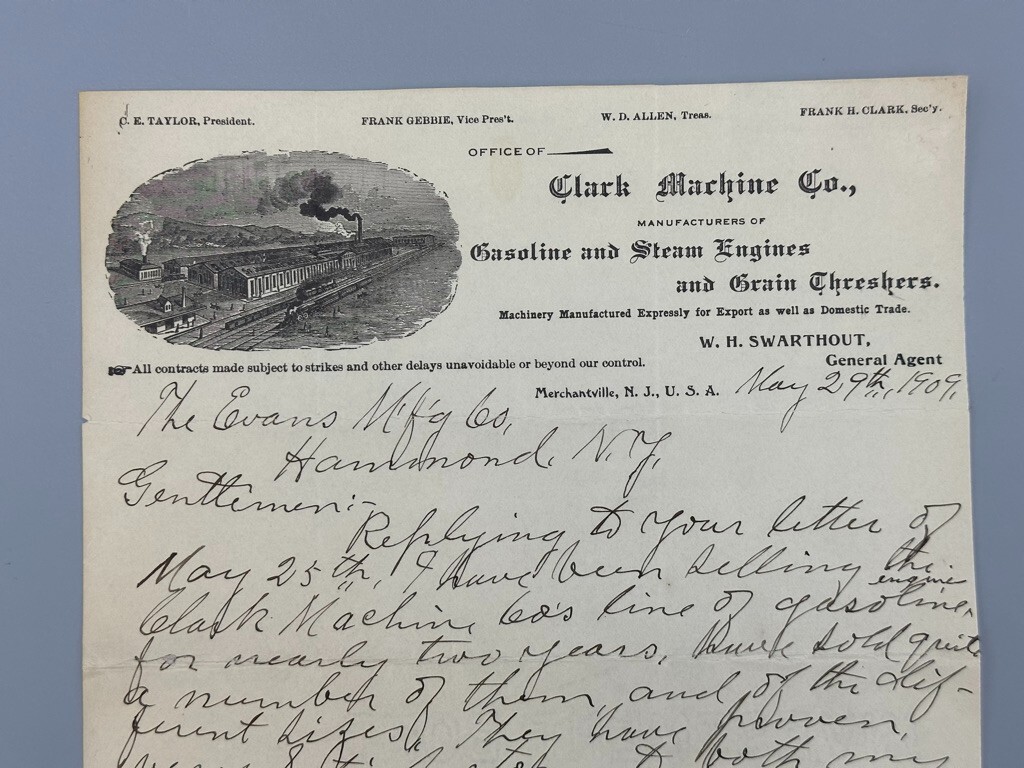 C. E. TAYLOR, President. FRANK GEBBIE, Vice Pres't. W. D. ALLEN, Treas. FRANK H. CLARK, Sec'y.
OFFICE OF
Clark Machine Co.,
MANUFACTURERS OF
Gasoline and Steam Engines
and Grain Threshers.
Machinery Manufactured Expressly for Export as well as Domestic Trade.
W. H. SWARTHOUT,
General Agent
All contracts made subject to strikes and other delays unavoidable or beyond our control.
Merchantville, N. J., U. S. A. May 29th, 1909,
The Evans M'f'g Co,
Hammond, N. Y,
Gentlemen:-
Replying to your letter of
May 25th, I have been selling the
Clark Machine Co's line of gasoline engine
for nearly two years, have sold quite
a number of them, and of the dif-
ferent sizes. They have proven,
both my